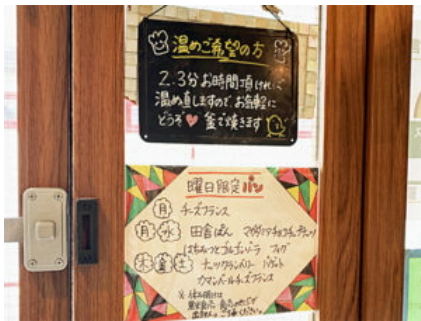 温めご希望の方
2.3分お時間頂ければ
温め直しますので、お気軽に
どうぞ 釜で焼きます
曜日限定パン
月 チーズフランス
月 水 田舎ぱん
はちみつとゴルゴンゾーラ フィグ
木 金 土 ナッツクランベリー
カマンベールチーズフランス